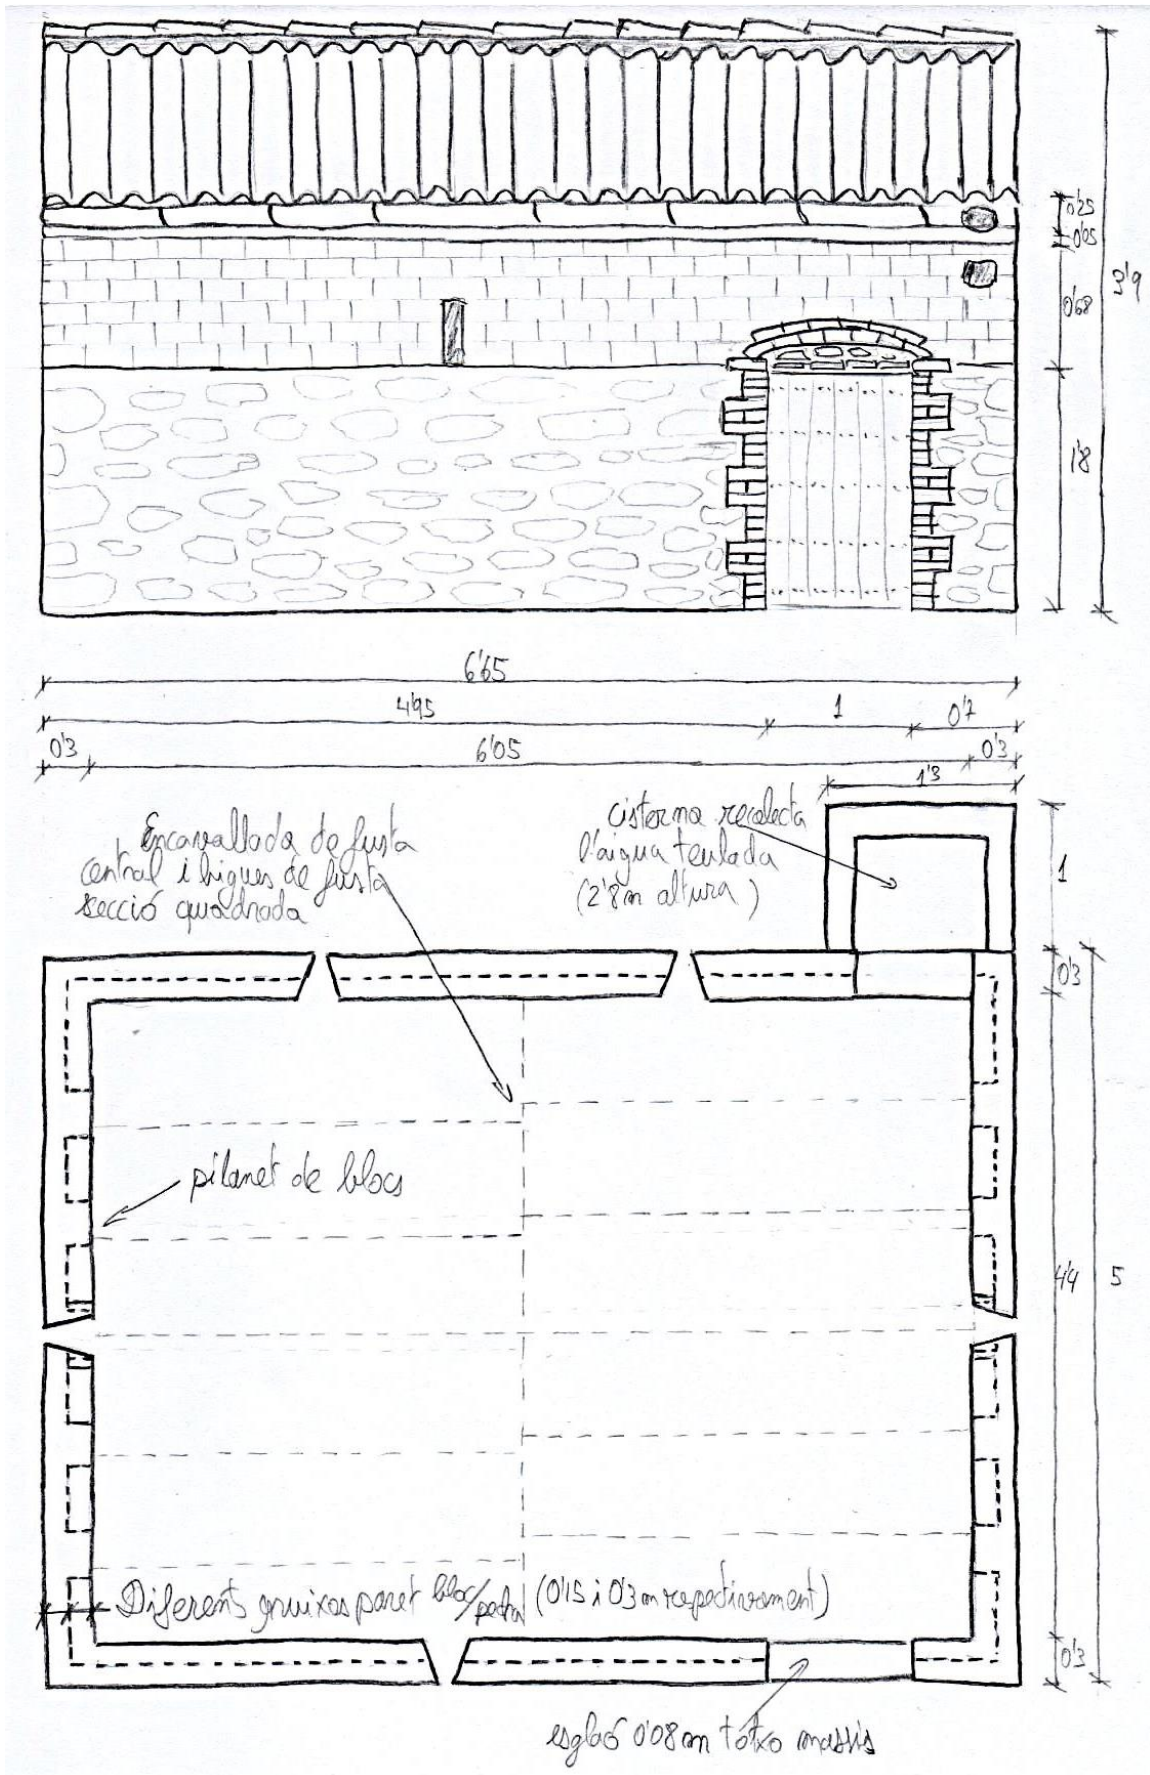 0'25
0'05
3'9
0'68
1'8
6'65
4'95
1
0'7
0'3
6'05
0'3
1'3
Encavallada de fusta
central i bigues de fusta
secció quadrada
cisterna recolecta
l'aigua teulada
(2'8m altura)
1
0'3
pilanet de blocs
4'4
5
Diferents gruixos paret bloc/pedra (0'15 i 0'3m respectivament)
0'3
esglaó 0'08m totxo massís